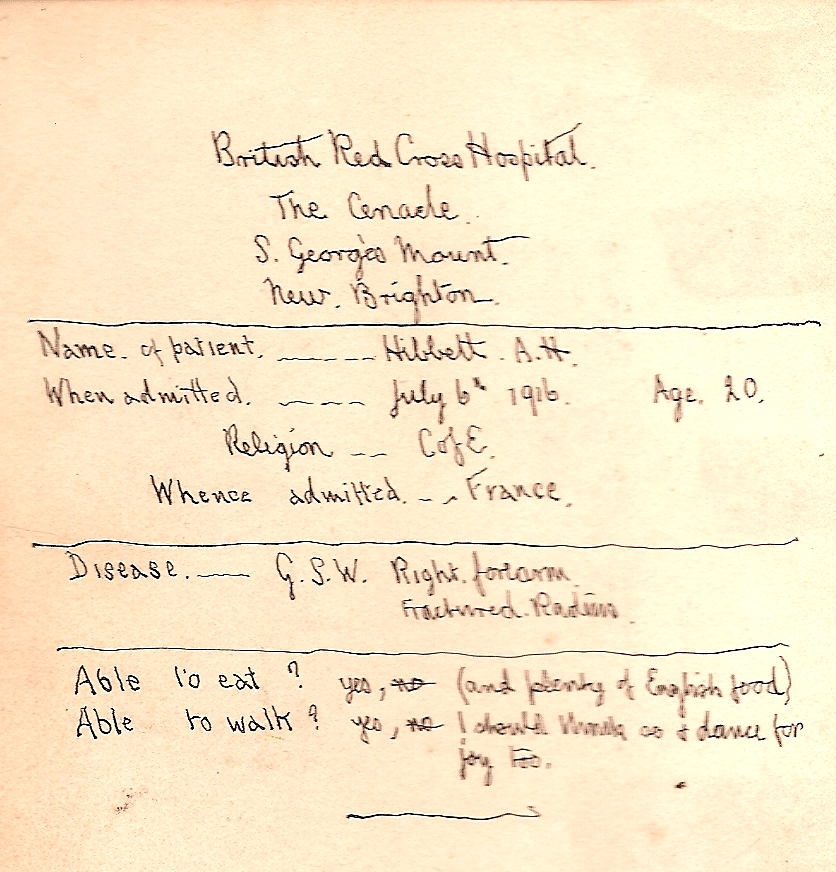 British Red Cross Hospital.
The Cenacle.
S. George's Mount.
New. Brighton.
Name. of patient. ———— Hibbett. A.H.
When admitted. ———— July 6th 1916. Age. 20.
Religion —— C of E.
Whence admitted. —— France.
Disease. —— G.S.W. Right. forearm.
Fractured. Radius.
Able to eat? yes, ~~no~~ (and plenty of English food)
Able to walk? yes, ~~no~~ I should think so & dance for
joy too.